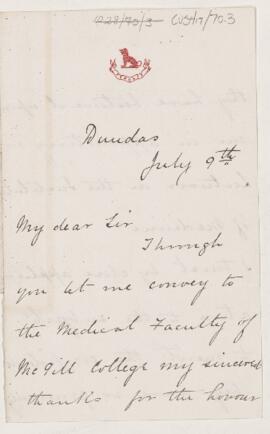 P28/70/3 CUS/17/70.3
Dundas
July 9th
My dear Sir
Through
you let me convey to
the Medical Faculty of
McGill College my sincerest
thanks for the honour